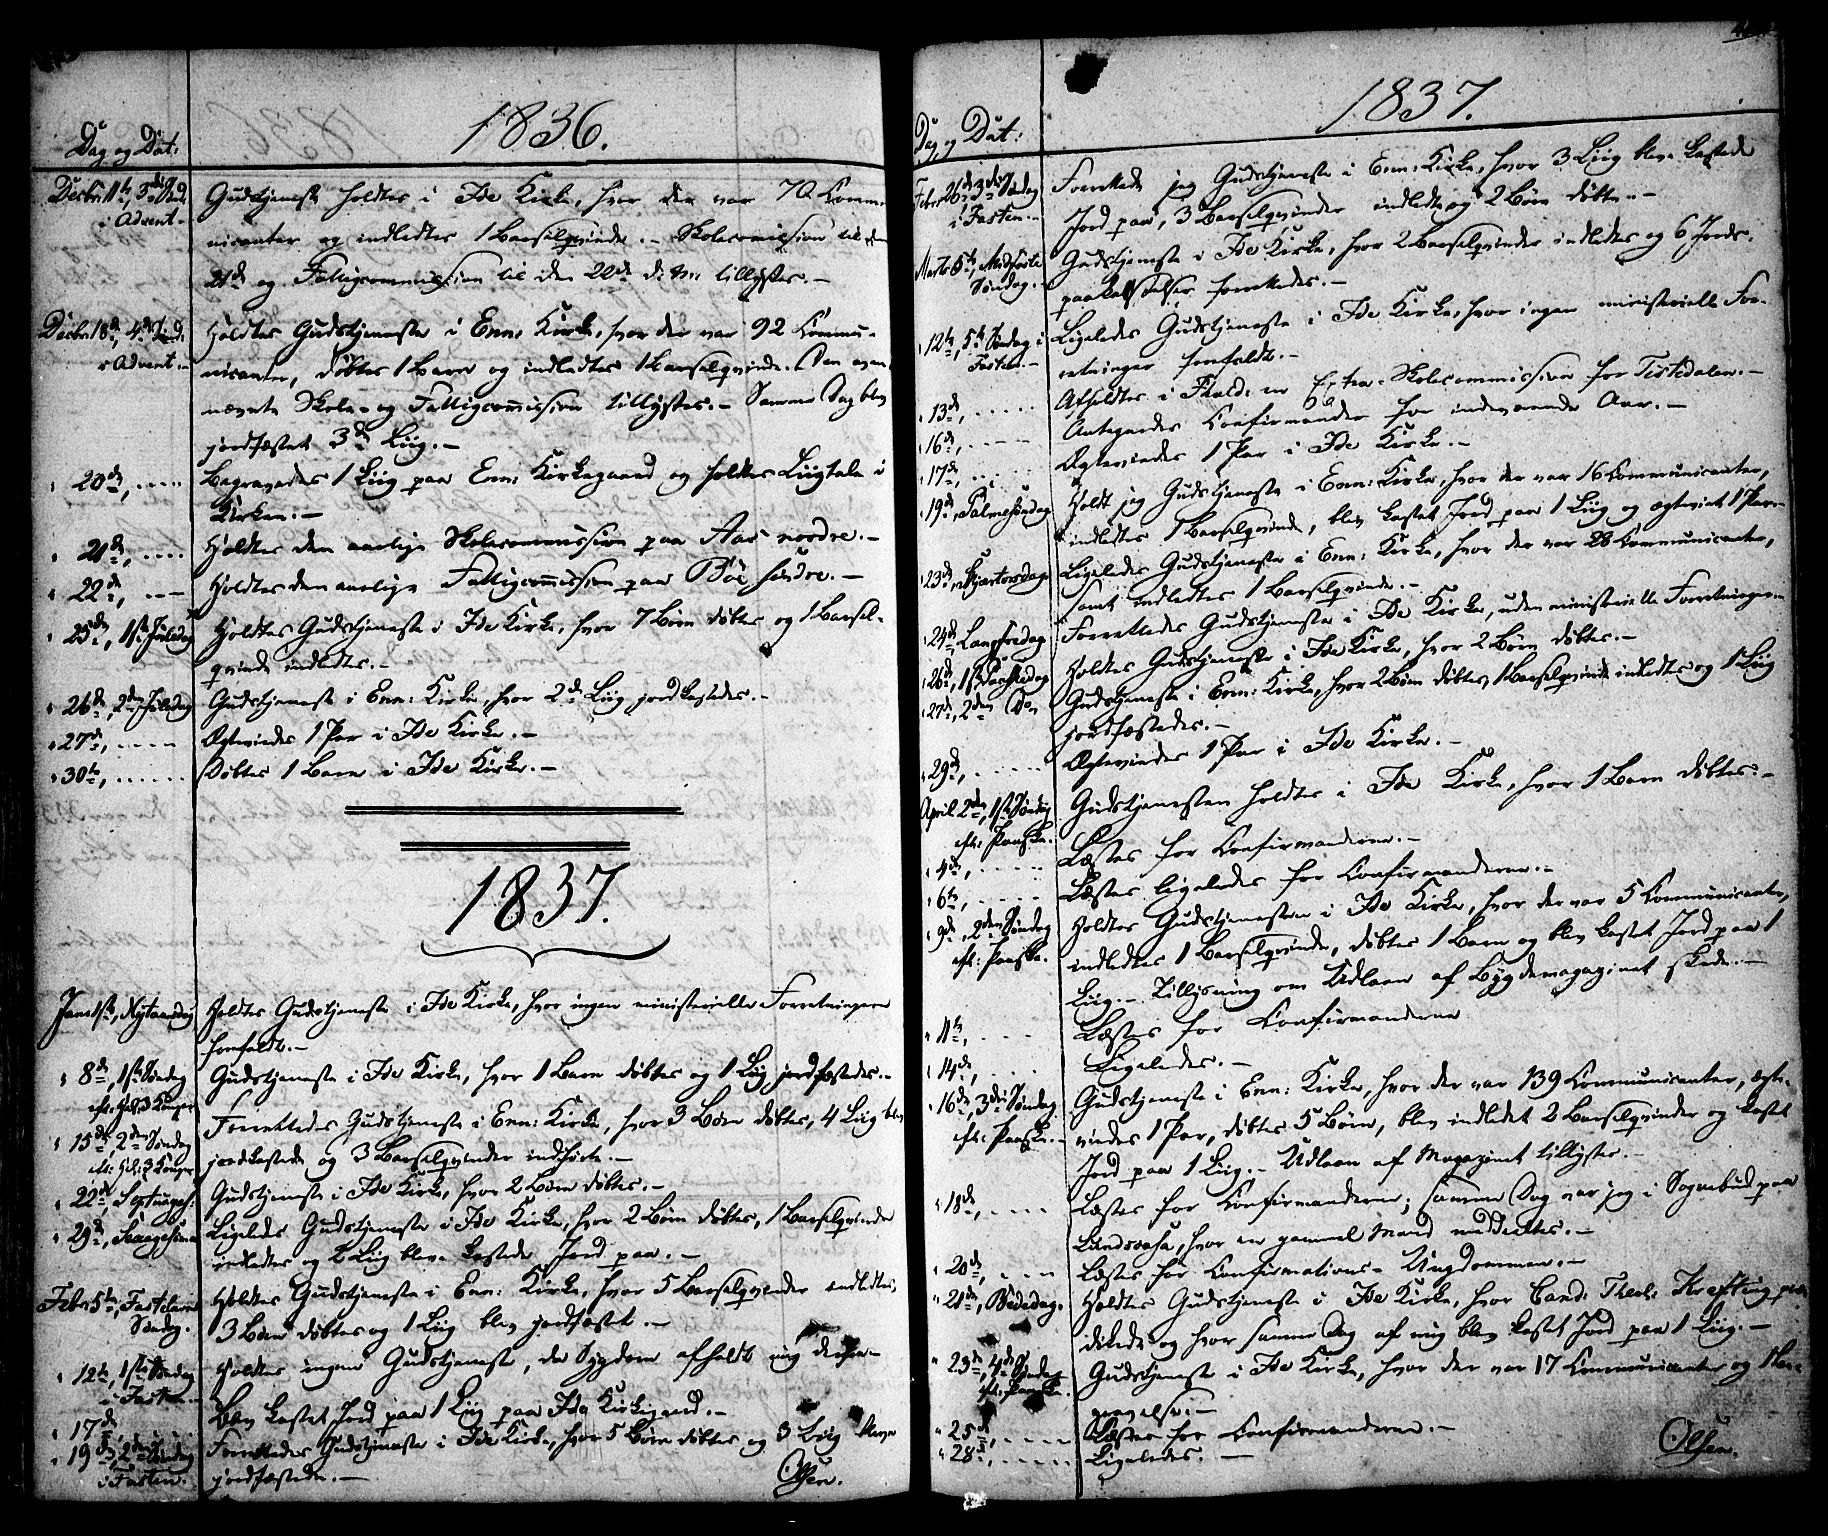 1836.
Dag og Dat:
Decbr 11te, 3die Sønd. Gudstjeneste holdtes i Ide Kirke, hvor der var 70 Commu-
i Advent.- nicanter og indledtes 1 Barselqvinde.- Skolecommission til den
21de og Fattigcommission til den 22de d: M: tillystes.-
Decbr 18de, 4de Sønd. Holdtes Gudstjeneste i Enn: Kirke, hvor der var 92 Commu-
i Advent.- nicanter, døbtes 1 Barn og indledtes 1 Barselqvinde. Den oven-
nævnte Skole- og Fattigcommission tillystes.- Samme Dag blev
jordfæstet 3de Liig.-
" 20de, .... Begravedes 1 Liig paa Enn: Kirkegaard og holdtes Liigtale i
Kirken.-
" 21de, .... Holdtes den aarlige Skolecommission paa Aas nordre.-
" 22de, ... Holdtes den aarlige Fattigcommission paa Bøe søndre.-
" 25de, 1ste Juledag Holdtes Gudstjeneste i Ide Kirke, hvor 7 Børn døbtes og 1 Barsel-
qvinde indledtes.-
" 26de, 2den Juledag Gudstjeneste i Enn: Kirke, hvor 2de Liig jordkastedes.-
" 27de, .... Ægteviedes 1 Par i Ide Kirke.-
" 30te, ..... Døbtes 1 Barn i Ide Kirke.-
1837.
Jan: 1ste, Nytaarsdag Holdtes Gudstjeneste i Ide Kirke, hvor ingen ministerielle Forretninger
forefaldt.-
" 8de, 1ste Søndag Gudstjeneste i Ide Kirke, hvor 1 Barn døbtes og 1 Liig jordfæstedes.-
eft: Hel: 3 Konger
" 15de, 2den Søndag Forrettedes Gudstjeneste i Enn: Kirke, hvor 3 Børn døbtes, 4 Liig blev
eft: Hel: 3 Konger jordkastede og 3 Barselqvinder indførte.-
" 22de, Septuages: Gudstjeneste i Ide Kirke, hvor 2 Børn døbtes.-
" 29de, Sexagesima Ligeledes Gudstjeneste i Ide Kirke, hvor 2 Børn døbtes, 1 Barselqvinde
indledtes og 2 Liig blev kastede Jord paa.-
Febr: 5te, Fastelavns Holdtes Gudstjeneste i Enn: Kirke, hvor 5 Barselqvinder indledtes,
Søndag. 3 Børn døbtes og 1 Liig blev jordfæstet.-
" 12te, 1ste Søndag Holdtes ingen Gudstjeneste, da Sygdom afholdt mig derfra-
i Fasten.-
" 17de Blev kastet Jord paa 1 Liig paa Ide Kirkegaard.-
" 19de, 2den Søndag Forrettedes Gudstjeneste i Ide Kirke, hvor 5 Børn døbtes og 3 Liig bleve
i Fasten. jordfæstede.- Olsen.
1837.
Dag og Dat:
Febr: 26de, 3die Søndag Forrettede jeg Gudstjeneste i Enn: Kirke, hvor 3 Liig blev kastede
i Fasten.- Jord paa, 3 Barselqvinder indledte og 2 Børn døbte.-
Marts 5te, Midfaste Gudstjeneste i Ide Kirke, hvor 2 Barselqvinder indledtes og 6 Jords-
Søndag.- paakastelser forrettedes.-
" 12te, 5te Søndag i Ligeledes Gudstjeneste i Ide Kirke, hvor ingen ministerielle For-
Fasten.- retninger forefaldt.-
" 13de, ..... Afholdtes i Fhald: en Extra-Skolecommission for Tistedalen.-
" 16de, .... Antegnedes Confirmander for indeværende Aar.-
" 17de, .... Ægteviedes 1 Par i Ide Kirke.-
" 19de, Palmesøndag Holdt jeg Gudstjeneste i Enn: Kirke, hvor der var 16 Communicanter,
indledtes 1 Barselqvinde, blev kastet Jord paa 1 Liig og ægteviet 1 Par.-
" 23de, Skjærtorsdag Ligeledes Gudstjeneste i Enn: Kirke, hvor der var 28 Communicanter,
samt indledtes 1 Barselqvinde.-
" 24de, Langfredag Forrettedes Gudstjeneste i Ide Kirke, uden ministerielle Forretninger.-
" 26de, 1ste Paaskedag Holdtes Gudstjeneste i Ide Kirke, hvor 2 Børn døbtes.-
" 27de, 2den Do Gudstjeneste i Enn: Kirke, hvor 2 Børn døbtes, 1 Barselqvinde indledtes og 1 Liig
jordfæstedes.-
" 29de, ..... Ægteviedes 1 Par i Ide Kirke.-
April 2den, 1ste Søndag Gudstjenesten holdtes i Ide Kirke, hvor 1 Barn døbtes.-
eft: Paaske.
" 4de, ..... Læstes for Confirmanderne.-
" 6te, ..... Læstes ligeledes for Confirmanderne.-
" 9de, 2den Søndag Holdtes Gudstjenesten i Ide Kirke, hvor der var 5 Communicanter,
eft: Paaske. indledtes 1 Barselqvinde, døbtes 1 Barn og blev kastet Jord paa 1
Liig.- Tillysning om Udlaan af Bygdemagazinet skede.-
" 11te, ..... Læstes for Confirmanderne
" 14de, .... Ligeledes.-
" 16de, 3die Søndag Gudstjeneste i Enn: Kirke, hvor der var 139 Communicanter, ægte-
eft: Paaske.- viedes 1 Par, døbtes 5 Børn, blev indledet 2 Barselqvinder og kastet
Jord paa 1 Liig.- Udlaan af Magazinet tillystes.-
" 18de, .... Læstes for Confirmanderne; samme Dag var jeg i Sognebud paa
hvor en gammel Mand meddeeltes.-
" 20de, .... Læstes for Confirmations-Ungdommen.-
" 21de, Bededag. Holdtes Gudstjeneste i Ide Kirke, hvor Cand: Theol: Krefting præ-
dikede og hvor samme Dag af mig blev kastet Jord paa 1 Liig.-
" 23de, 4de Søndag Gudstjeneste i Ide Kirke, hvor der var 17 Communicanter og 1 Be-
eft: Paaske. gravelse.-
" 25de, .... Læstes for Confirmanderne.-
" 28de, ..... Ligeledes.- Olsen.